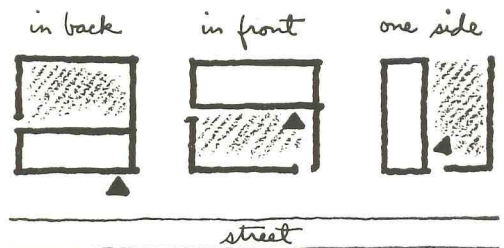 in back
in front
one side
street